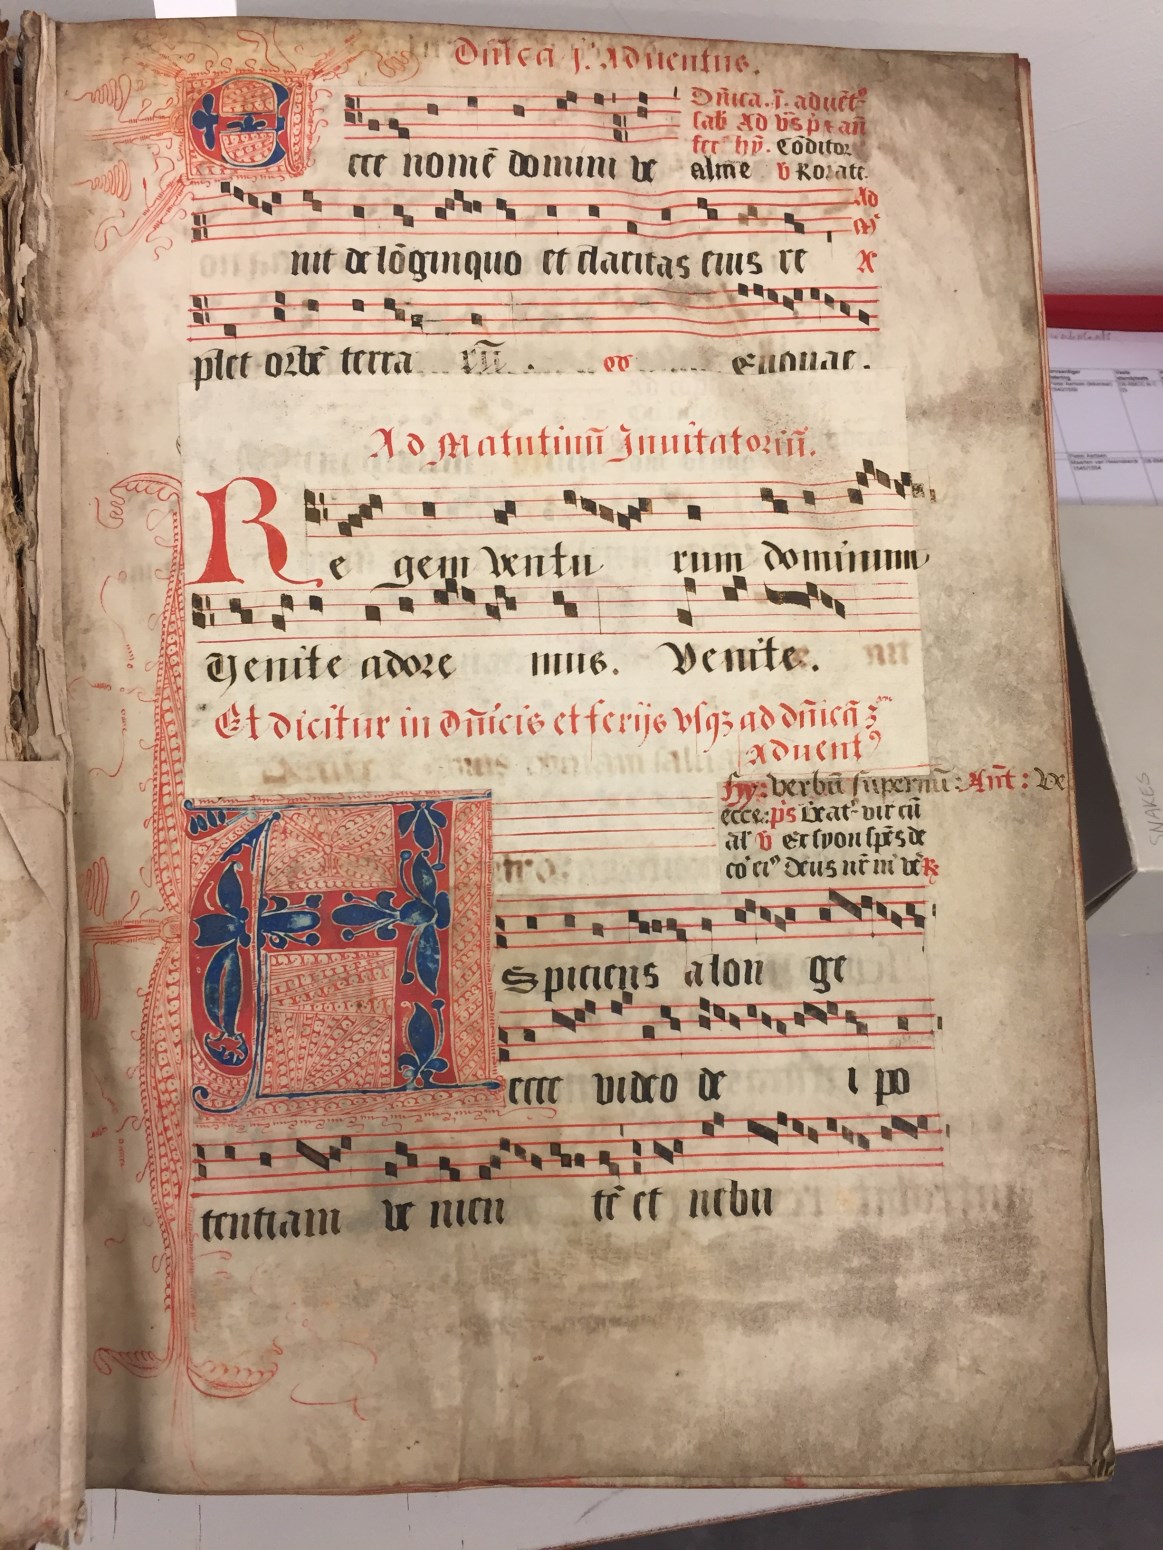 Dn̄ica j. Aduentus.
Dn̄ica. i. aduēt⁹
sab̄ Ad vs̄ p̄ʳ an̄
ferᶜ hȳ. Cōditor
Ecce nomē domini ve alme v Rorate.
Ad
nit de lōginquo et claritas eius re
plet orbē terra rū. Euouae.
Ad Matutinū Inuitatoriū.
Re gem ventu rum dominum
Venite adore mus. Venite.
Et dicitur in dn̄icis et ferijs vsqꝫ ad dn̄icā 3ᵃᵐ
Aduent⁹
hy: Verbū supernū: Ant̄: Ve
ecce: ps Beatꝰ vir cū
al' v Ex syon spēs de
coꝛ eiꝰ deus nr̄ m̄ vē R
Aspiciens a lon ge
ecce video de i po
tentiam ve nien tē et nebu